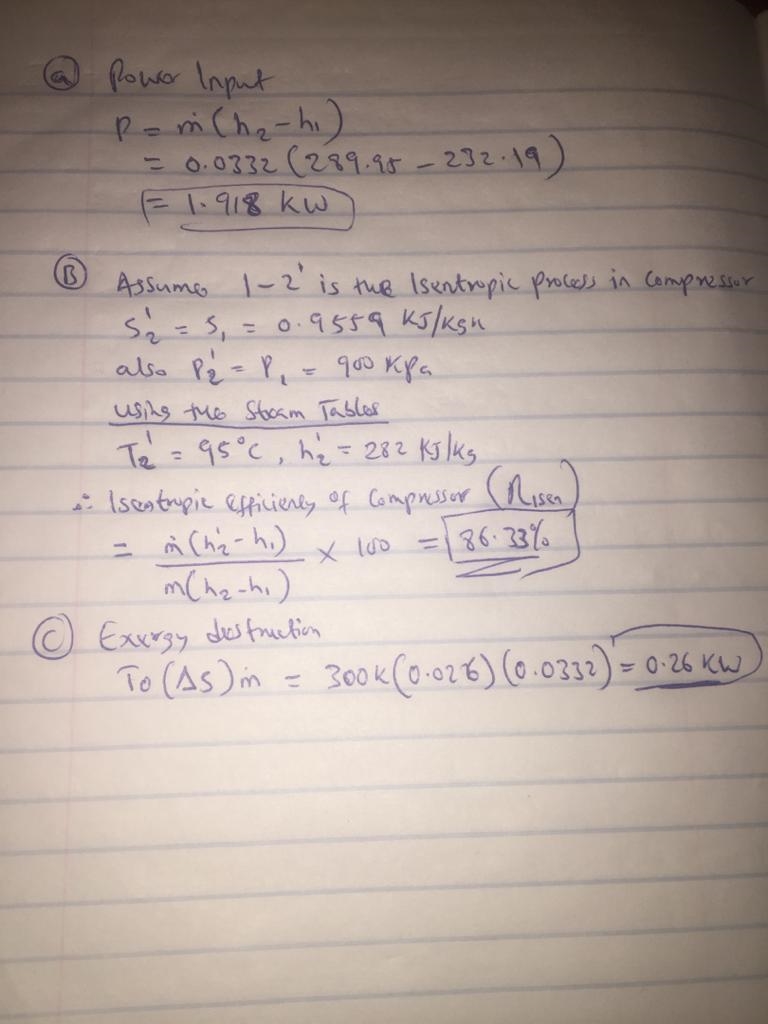 (a) Power Input
P = ṁ(h₂-h₁)
= 0.0332 (289.95 - 232.19)
= 1.918 KW
(B) Assume 1-2' is the Isentropic process in compressor
S₂' = S₁ = 0.9559 KJ/Kgk
also P₂' = P₁ = 900 Kpa
using the Steam Tables
T₂' = 95°C, h₂' = 282 KJ/Kg
∴ Isentropic efficiency of Compressor (ηisen)
= ṁ(h₂'-h₁) / m(h₂-h₁) × 100 = 86.33%
(C) Exergy destruction
To (ΔS) ṁ = 300K (0.026) (0.0332) = 0.26 KW